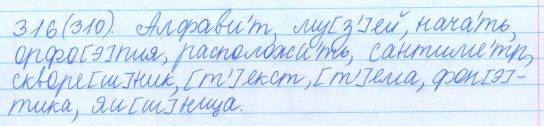 316(310). Алфави́т, му[з']ей, нача́ть,
орфо[э]пия, расположи́ть, сантиме́тр,
скворе[ш]ник, [т']екст, [т']ема, фон[э]-
тика, яи[ш]ница.